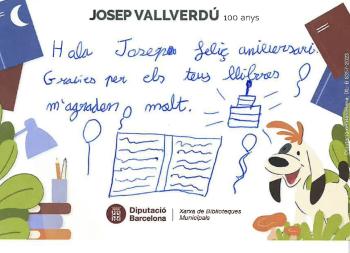 JOSEP VALLVERDÚ 100 anys
Hola Josep feliç aniversari.
Gracies per els teus llibres
m'agraden molt.
Diputació Barcelona
Xarxa de Biblioteques Municipals